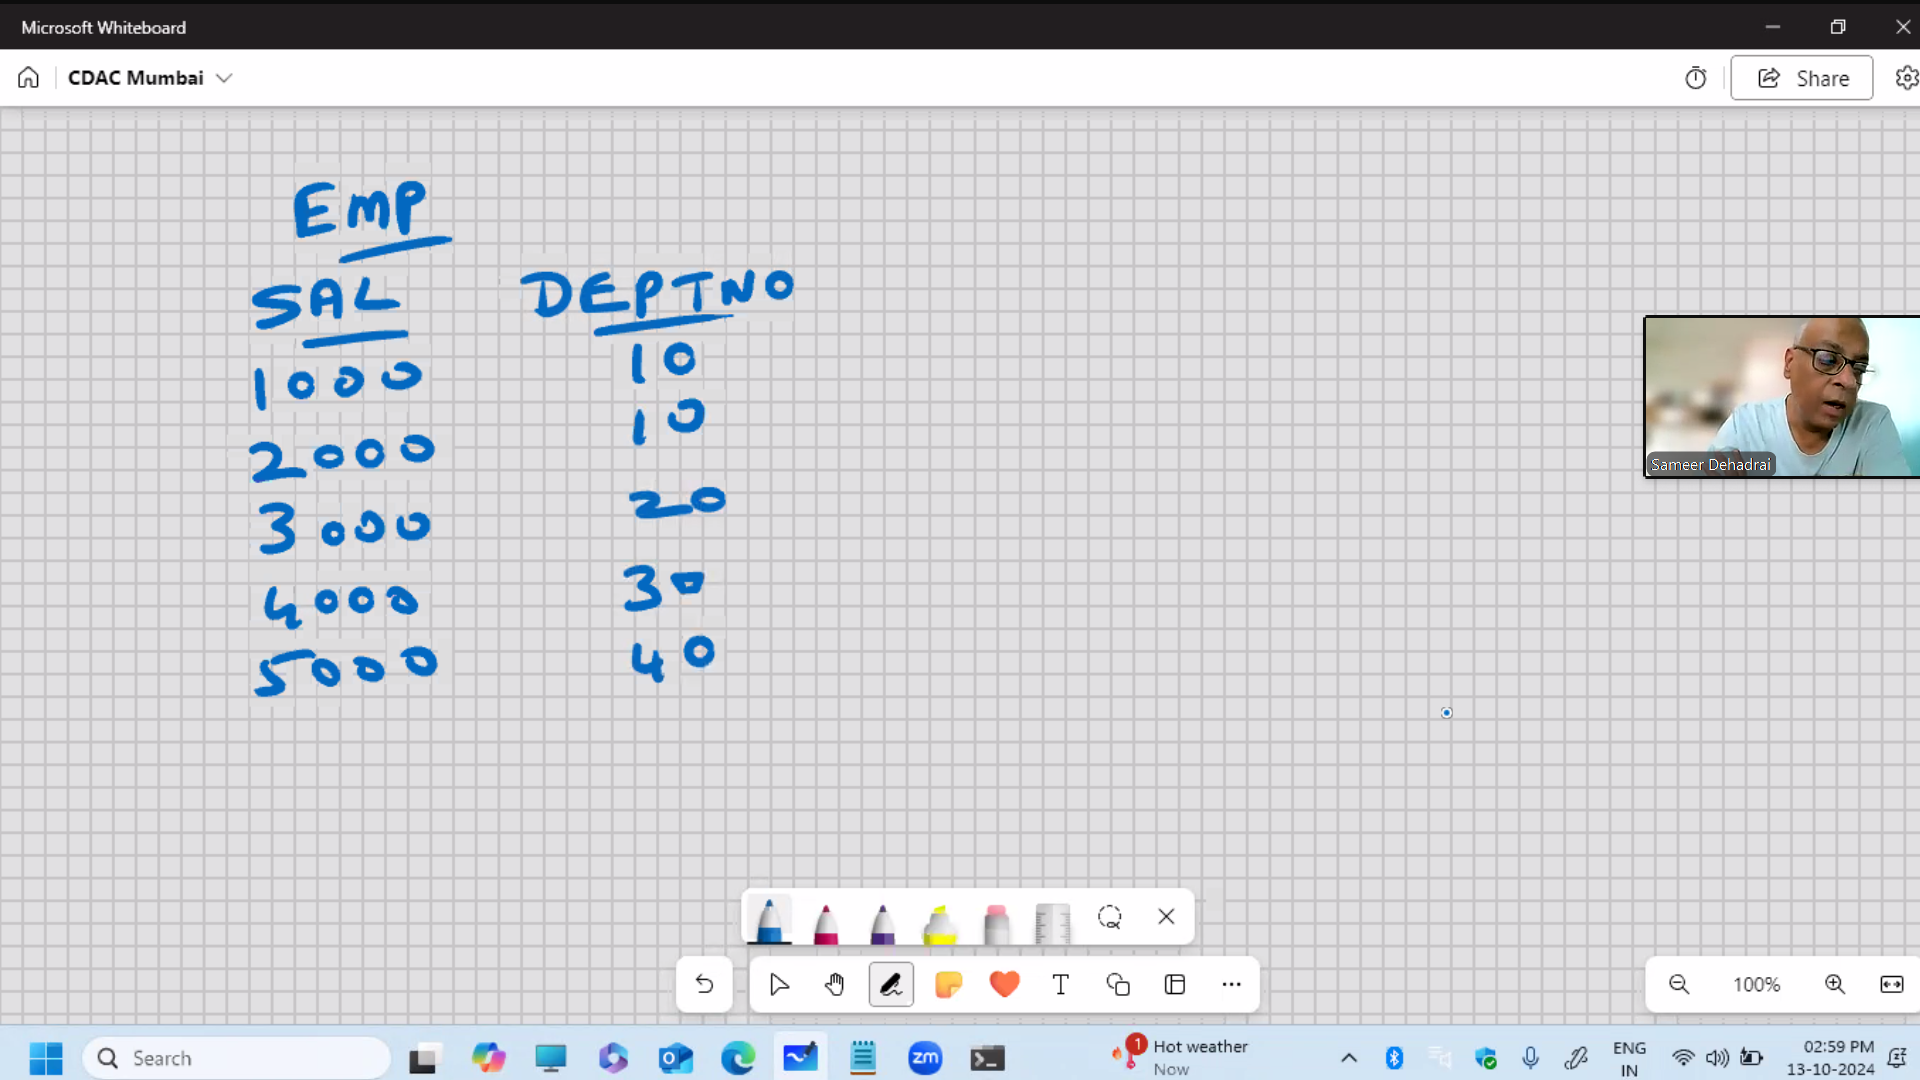 Microsoft Whiteboard
CDAC Mumbai
Share
EMP
SAL DEPTNO
1000 10
2000 10
3000 20
4000 30
5000 40
Sameer Dehadrai
T
100%
Search
zm
1
Hot weather
Now
ENG
IN
02:59 PM
13-10-2024